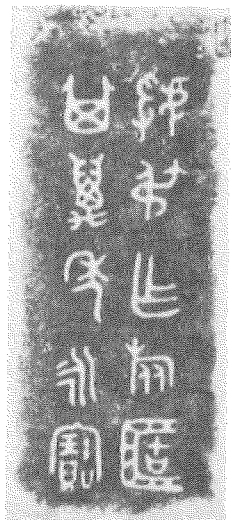 虢叔作旅簠
其萬年永寶